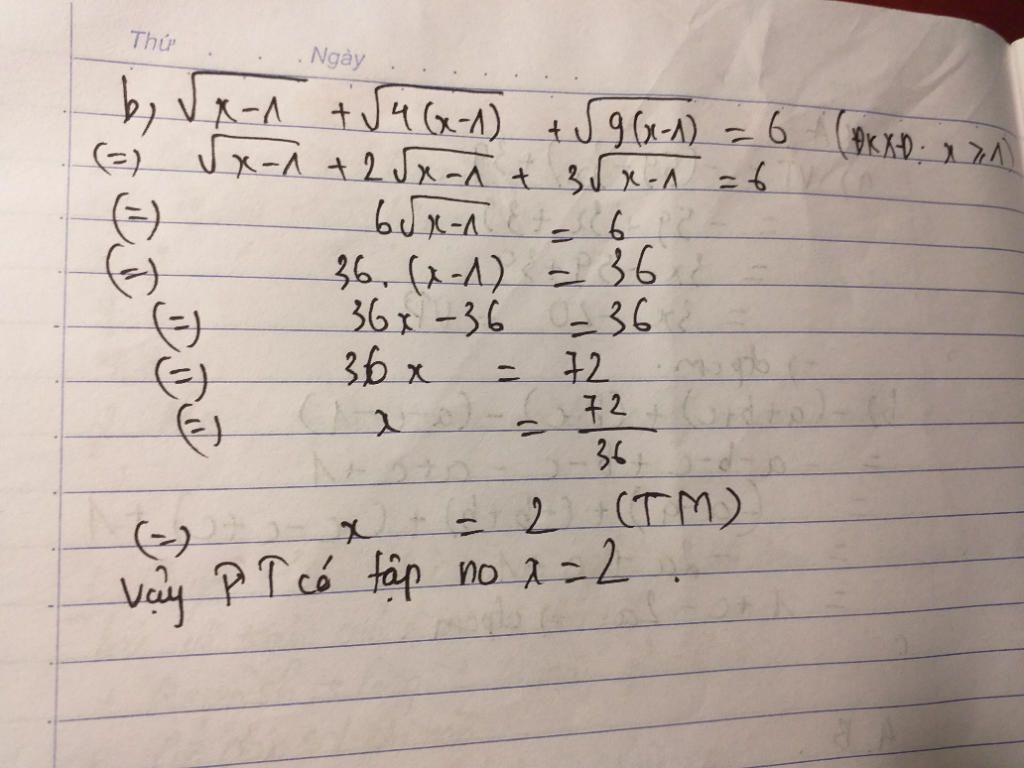 Thứ . . . Ngày . . . . . . .
b, √x-1 + √4(x-1) + √9(x-1) = 6 (ĐKXĐ: x ≥ 1)
(=) √x-1 + 2√x-1 + 3√x-1 = 6
(=) 6√x-1 = 6
(=) 36.(x-1) = 36
(=) 36x - 36 = 36
(=) 36x = 72
(=) x = 72/36
(=) x = 2 (TM)
Vậy PT có tập no x = 2 .